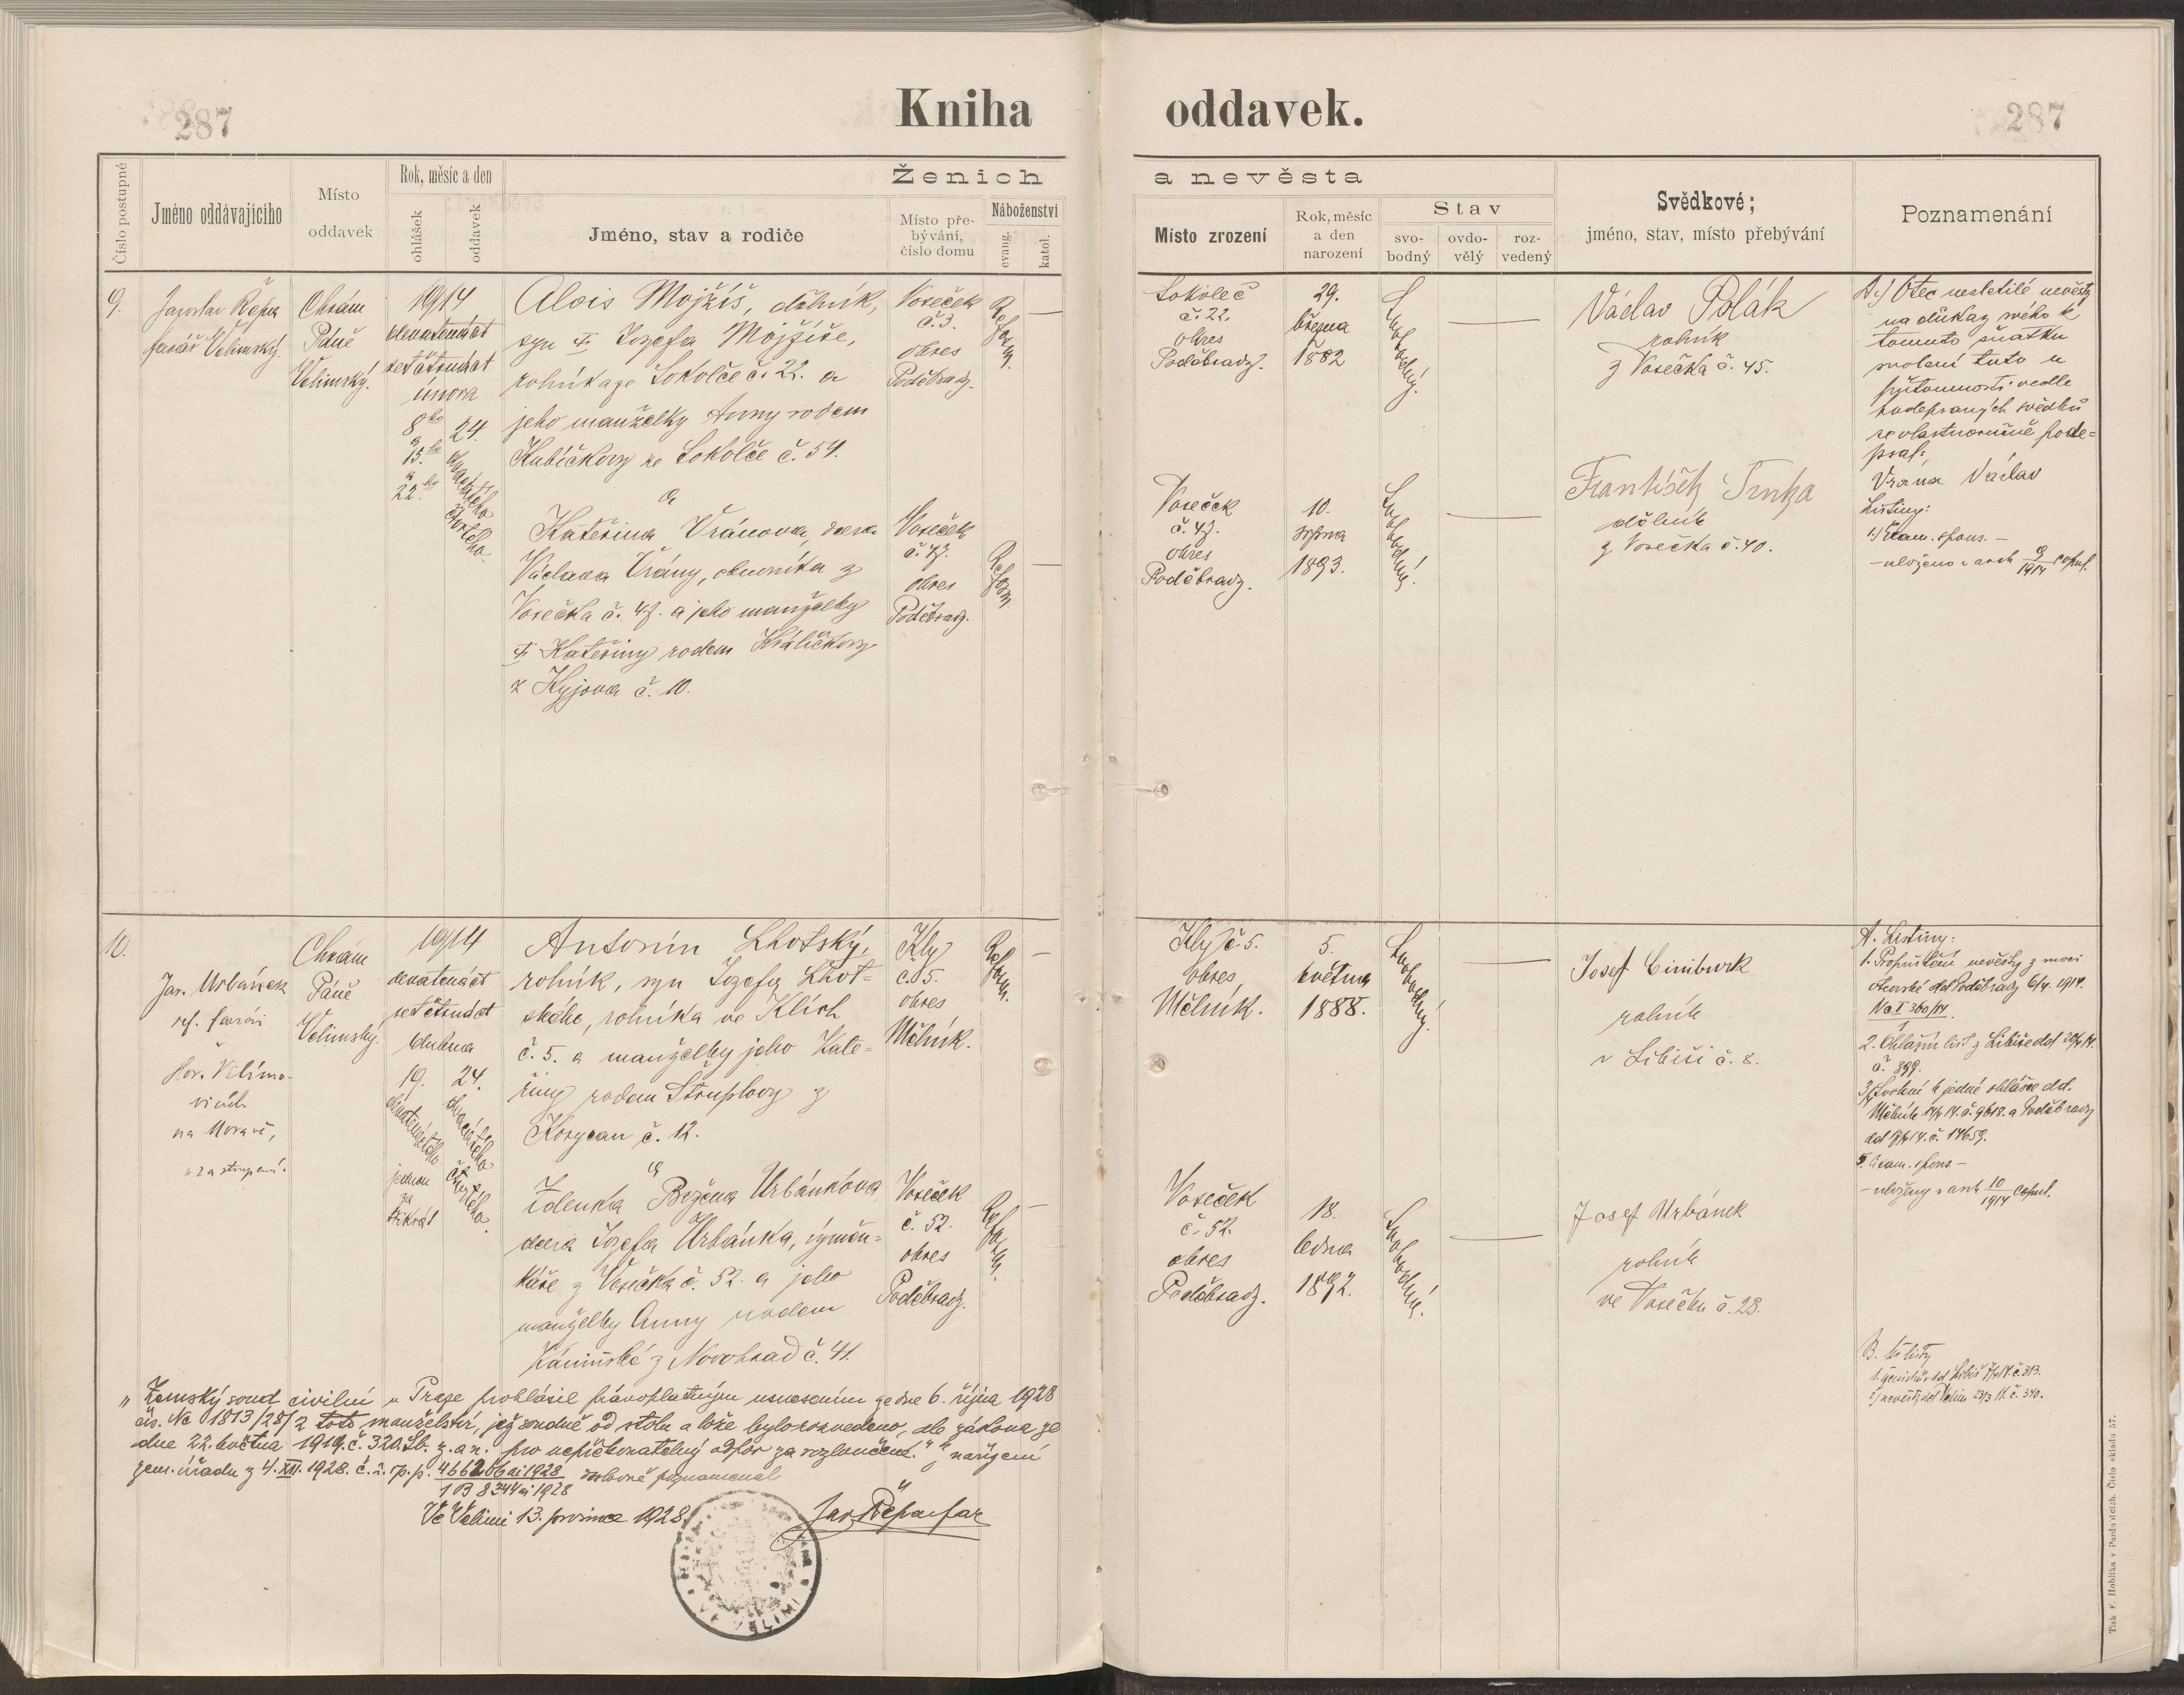 287
Kniha oddavek.
287
Číslo postupné
Jméno oddávajícího
Místo
oddavek
Rok, měsíc a den
ohlášek
oddavek
Ženich
a nevěsta
Jméno, stav a rodiče
Místo pře-
bývání,
číslo domu
Náboženství
evang.
katol.
Místo zrození
Rok, měsíc
a den
narození
Stav
svo-
bodný
ovdo-
vělý
roz-
vedený
Svědkové;
jméno, stav, místo přebývání
Poznamenání
9.
Jaroslav Řepa
farář Velimský.
Chrám
Páně
Velimský.
1914
devatenáct
set čtrnáct
února
8ho
a
15.ho
a
22.ho
24.
dvacátého
čtvrtého.
Alois Mojžíš, dělník,
syn † Jozefa Mojžíše,
rolníka ze Sokolče č. 22. a
jeho manželky Anny rodem
Kubíčkovy ze Sokolče č. 54.
a
Kateřina Vránova, dcera
Václava Vrány, obuvníka z
Vosečka č. 47. a jeho manželky
† Kateřiny rodem Králíčkovy
z Kyjova č. 10.
Voseček
č. 3.
okres
Poděbrady.
Reform.
—
Voseček
č. 47.
okres
Poděbrady.
Reform.
—
Sokoleč
č. 22.
okres
Poděbrady.
29.
března
1882
Svobodný.
Voseček
č. 47.
okres
Poděbrady.
10.
srpna
1893.
Svobodná.
Václav Polák
rolník
z Vosečka č. 45.
František Trnka
dělník
z Vosečka č. 40.
A.) Otec nezletilé nevěsty
na důkaz svého k
tomuto sňatku
svolení tuto u
přítomnosti vedle
podepsaných svědků
se vlastnoručně pode-
psal:
Vrána Václav
Listiny:
1.) Exam. spons. —
— uloženo v arch 9/1914 copul.
10.
Jar. Urbánek
ref. farář
Hor. Vilímo-
vicích
na Moravě,
v zastoupení.
Chrám
Páně
Velimský.
1914
devatenáct
set čtrnáct
dubna
19.
devatenáctého
jednou
za
třikrát
24.
dvacátého
čtvrtého.
Antonín Lhotský,
rolník, syn Jozefa Lhot-
ského, rolníka ve Klích
č. 5. a manželky jeho Kate-
řiny rodem Štruplovy z
Korycan č. 12.
a
Zdenka Božena Urbánkova
dcera Jozefa Urbánka, výmin-
káře z Vosečka č. 52. a jeho
manželky Anny rodem
Kámišské z Novohrad č. 41.
Kly
č. 5.
okres
Mělník.
Reform.
—
Voseček
č. 52.
okres
Poděbrady.
Reform.
—
Kly č. 5.
okres
Mělník.
5.
května
1888.
Svobodný.
Voseček
č. 52
okres
Poděbrady.
18.
ledna
1892.
Svobodná.
Josef Ciniburk
rolník
v Libiši č. 8.
Josef Urbánek
rolník
ve Vosečku č. 23.
A. Listiny:
1. Propuštění nevěsty z moci
otcovské dd Poděbrady 6/4. 1914.
2. Ohlašní list z Libiše
č. 899.
3/4 Svolení k jedné ohlášce dd.
Mělník č. 9618. a Poděbrady
č. 14659.
5. Exam. spons —
— uloženy v arch 10/1914 copul.
„Zemský soud civilní v Praze prohlásil právoplatným usnesením ze dne 6. října 1928
čís. Nc 1813/28/2 toto manželství, jež soudně od stolu a lože bylo rozvedeno, dle zákona ze
dne 22. května 1919. č. 320. Sb. z. a n. pro nepřekonatelný odpor za rozloučené." Z nařízení
zem. úřadu z 4. XII. 1928. č. doslovně poznamenal
Ve Velimi 13. prosince 1928.
Jar. Řepa far
VE VELIMI
Tisk F. Hoblíka v Pardubicích. Číslo skladu 57.